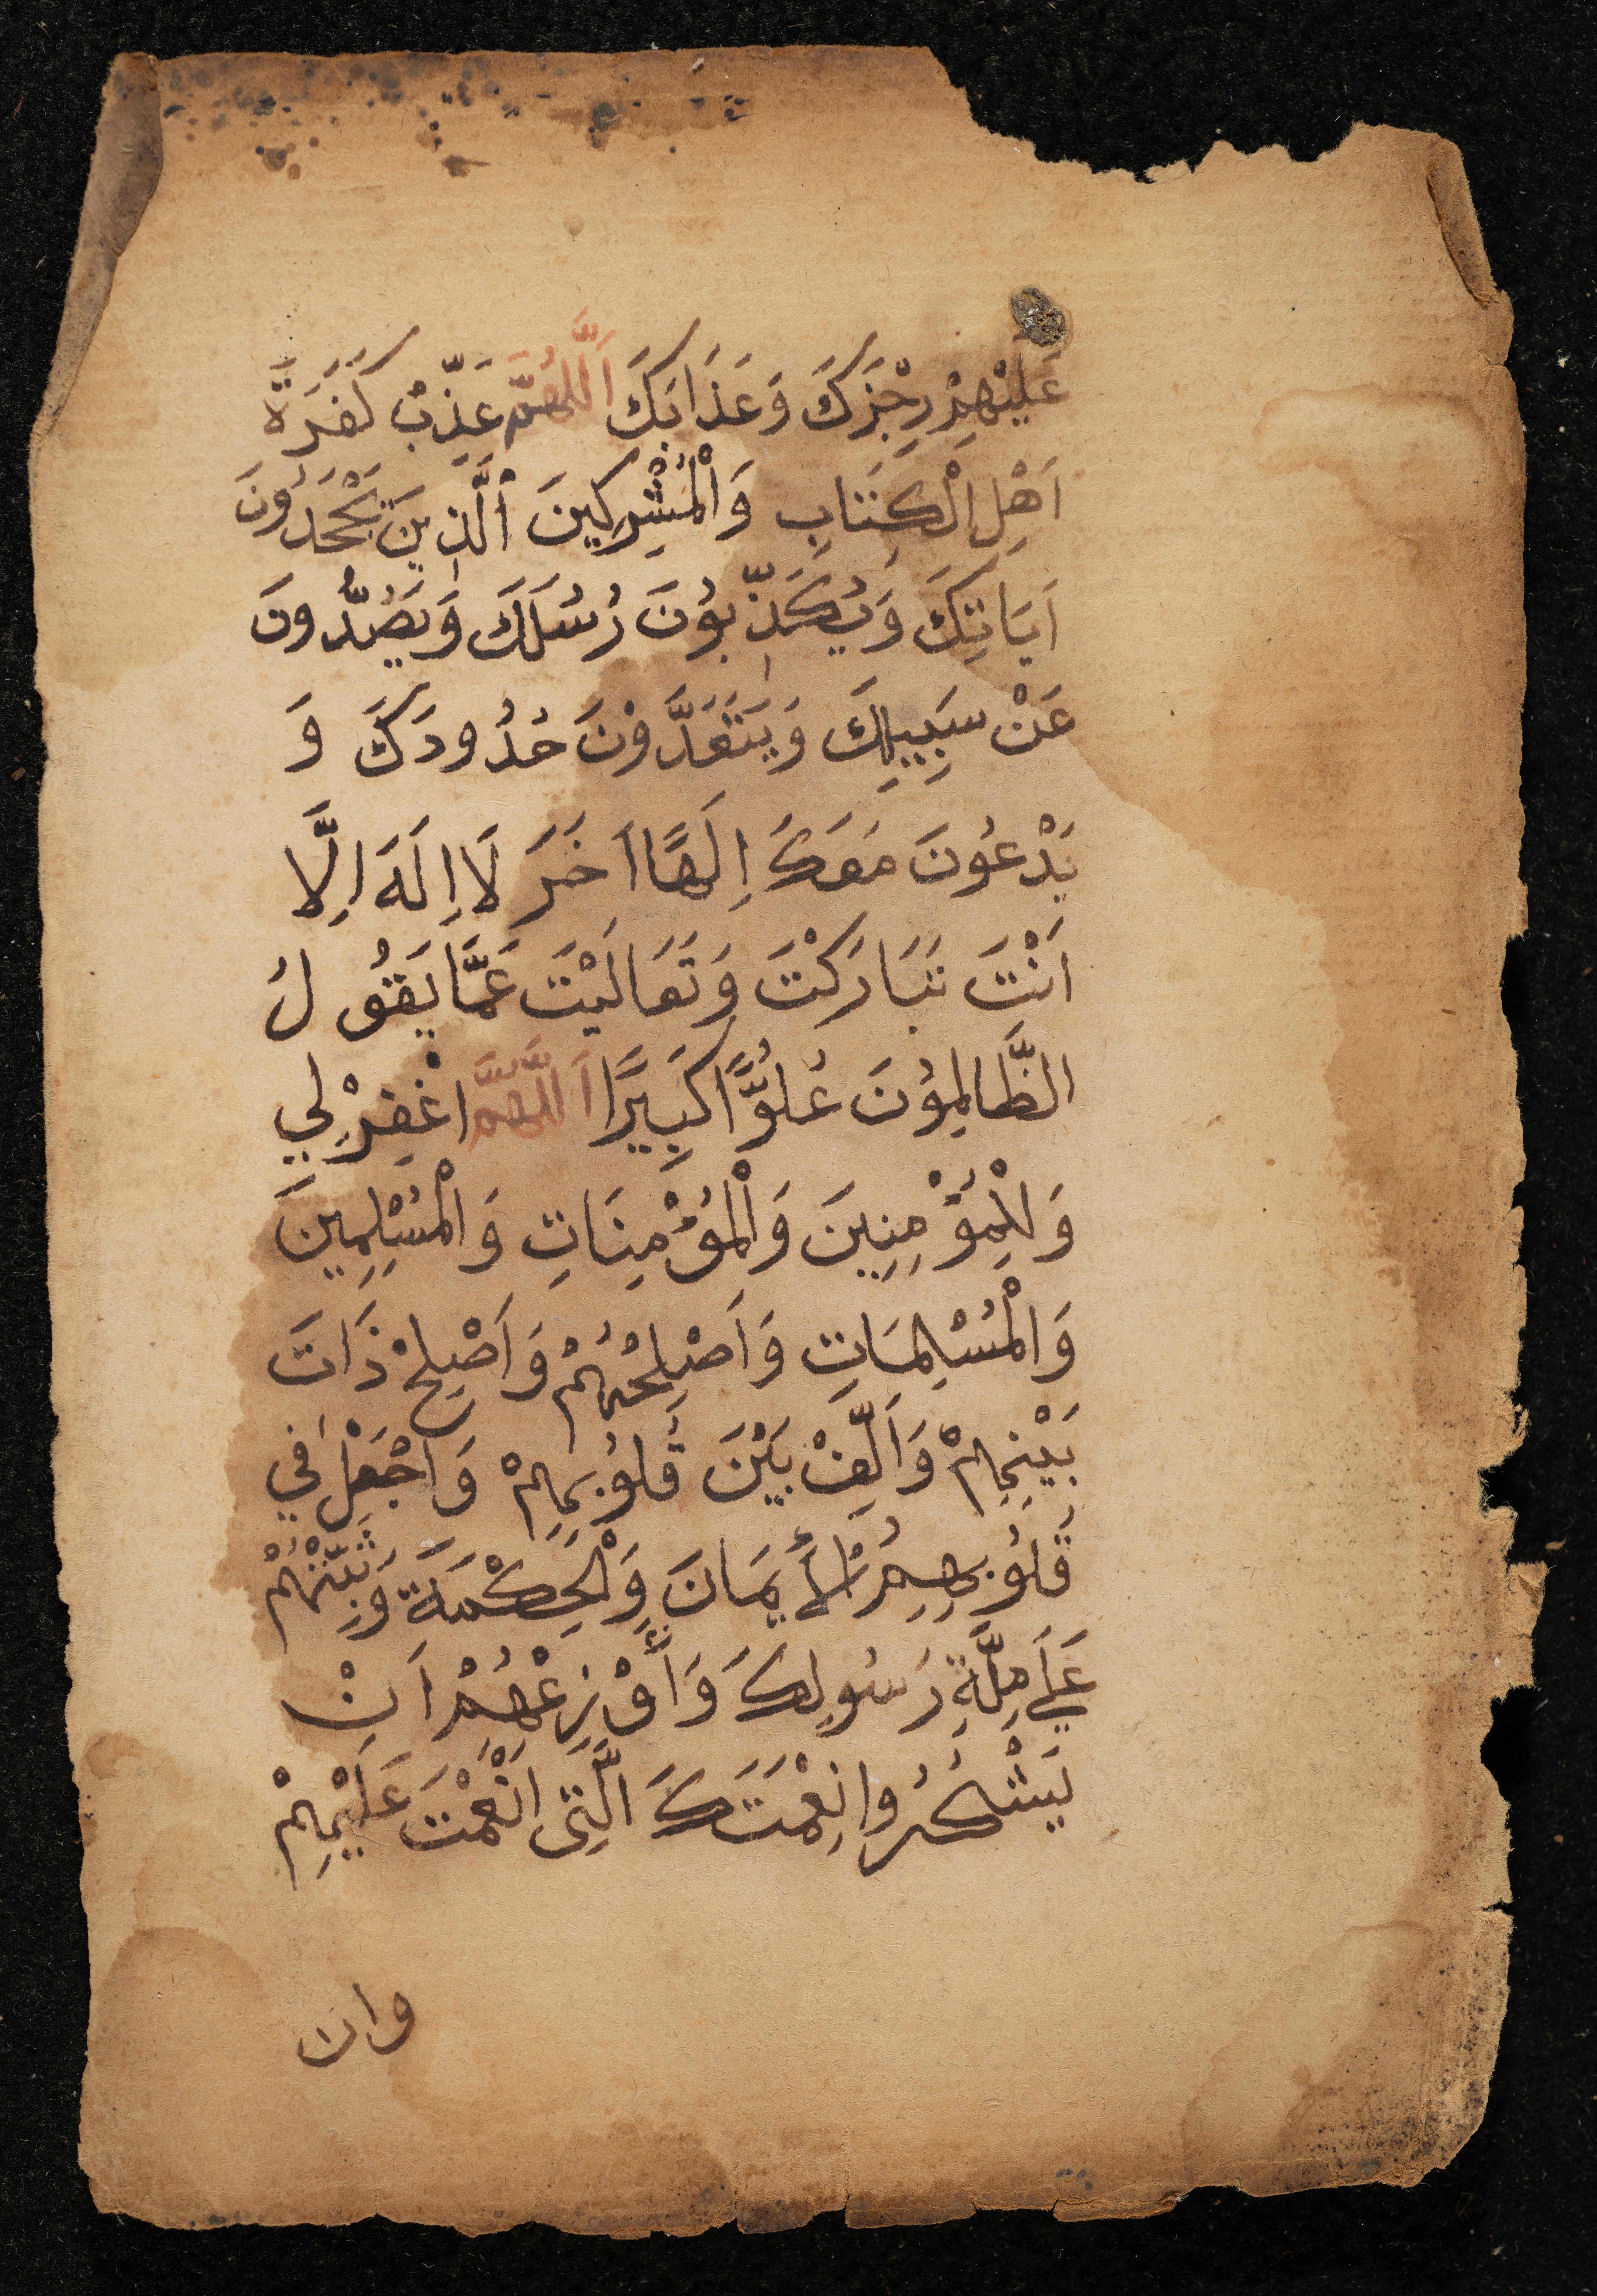 عَلَيْهِمْ رِجْزَكَ وَعَذَابَكَ اَللّٰهُمَّ عَذِّبْ كَفَرَةَ
اَهْلِ الْكِتَابِ وَالْمُشْرِكِينَ اَلَّذِينَ يَجْحَدُونَ
اَيَاتِكَ وَيُكَذِّبُونَ رُسُلَكَ وَيَصُدُّونَ
عَنْ سَبِيلِكَ وَيَتَعَدَّوْنَ حُدُودَكَ وَ
يَدْعُونَ مَعَكَ اِلَهًا اَخَرَ لَا اِلَهَ اِلَّا
اَنْتَ تَبَارَكْتَ وَتَعَالَيْتَ عَمَّا يَقُولُ
الظَّالِمُونَ عُلُوًّا كَبِيرًا اَللّٰهُمَّ اغْفِرْ لِي
وَلِلْمُؤْمِنِينَ وَالْمُؤْمِنَاتِ وَالْمُسْلِمِينَ
وَالْمُسْلِمَاتِ وَاَصْلِحْهُمْ وَاَصْلِحْ ذَاتَ
بَيْنِهِمْ وَاَلِّفْ بَيْنَ قُلُوبِهِمْ وَاجْعَلْ فِي
قُلُوبِهِمُ الْأِيمَانَ وَلْحِكْمَةَ وَثَبِّتْهُمْ
عَلَى مِلَّةِ رَسُولِكَ وَأَوْزِعْهُمْ اَنْ
يَشْكُرُوا نِعْمَتَكَ الَّتِى اَنْعَمْتَ عَلَيْهِمْ
وان